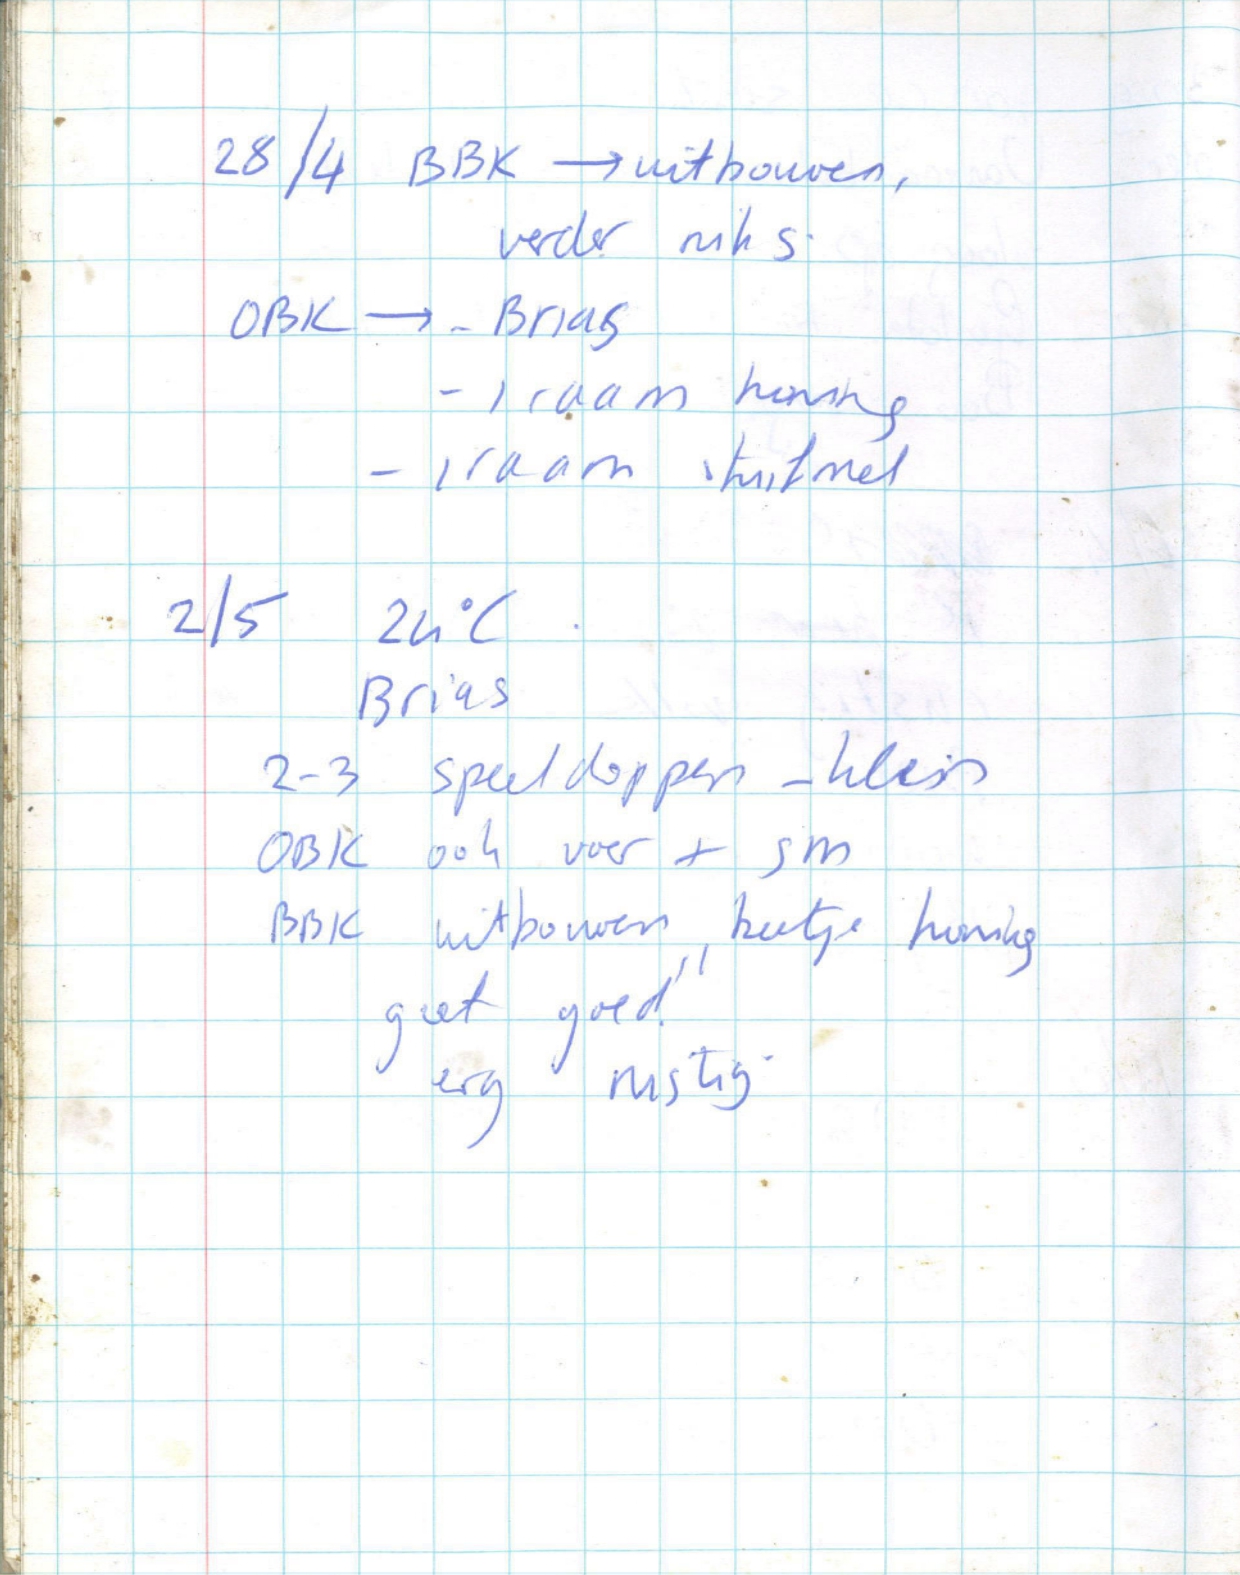 28/4 BBK → uitbouwen,
verder niks.
OBK → - Brias
- 1 raam honing
- 1 raam stuifmel
2/5 24°C
Brias
2-3 speeldoppen - klein
OBK ook voer + sm
BBK uitbouwen, beetje honing
gaat goed!!
erg rustig.